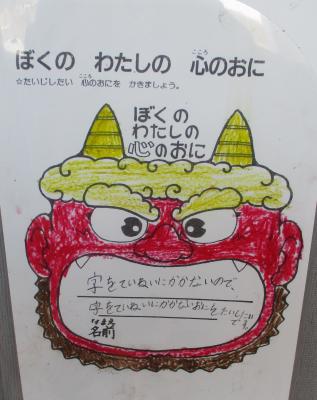 ぼくの わたしの 心のおに
こころ
☆たいじしたい 心のおにを かきましょう。
こころ
ぼくの
わたしの
心のおに
字をていねいにかかないので、
字をていねいにかかないおにをたいじ
です。
なまえ
名前